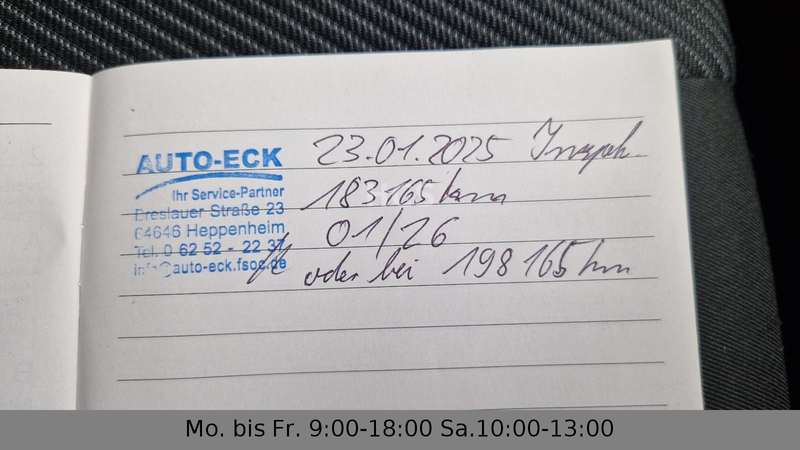 AUTO-ECK 23.01.2025 Inspek.
Ihr Service-Partner 183165 km
Breslauer Straße 23
64646 Heppenheim 01/26
Tel. 0 62 52 - 22 37
info@auto-eck.fsoc.de oder bei 198165 km
Mo. bis Fr. 9:00-18:00 Sa.10:00-13:00